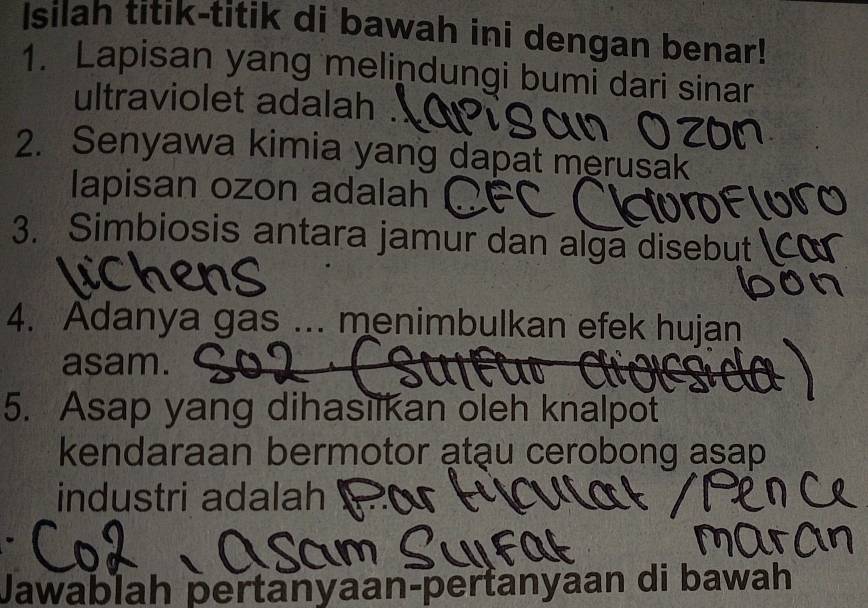 Isilah titik-titik di bawah ini dengan benar!
1. Lapisan yang melindungi bumi dari sinar
ultraviolet adalah ... lapisan ozon
2. Senyawa kimia yang dapat merusak
lapisan ozon adalah ... CFC (kloroFloro
3. Simbiosis antara jamur dan alga disebut
lichens
kar
bon
4. Adanya gas ... menimbulkan efek hujan
asam. SO2 (sulfur dioksida)
5. Asap yang dihasilkan oleh knalpot
kendaraan bermotor atau cerobong asap
industri adalah ... Partikulat / Pence
maran
CO2, asam Sulfat
Jawablah pertanyaan-pertanyaan di bawah